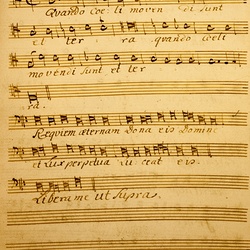 Quando Coe: li moven di sunt
et ter ra quando coeli
movendi sunt et ter
ra.
Requiem æternam Dona eis Domine
et Lux perpetua Lu ceat eis.
Libera me ut Supra.